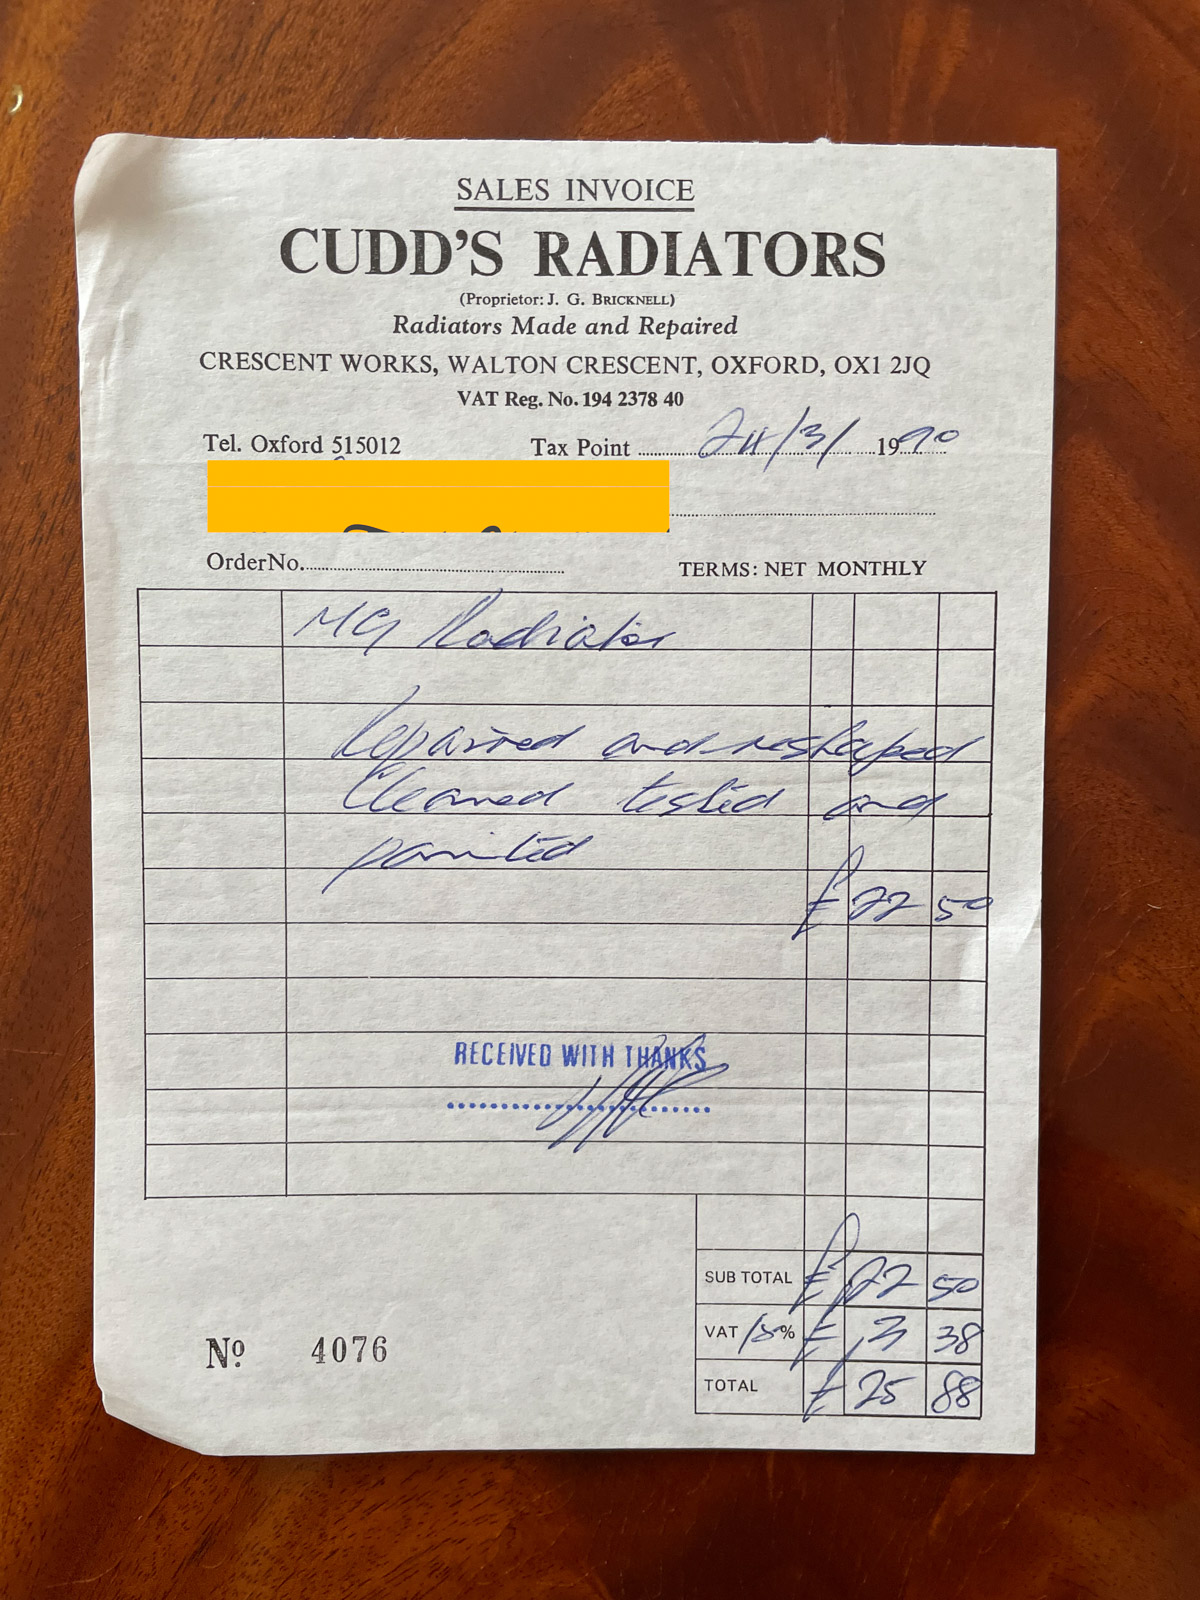 SALES INVOICE
CUDD'S RADIATORS
(Proprietor: J. G. BRICKNELL)
Radiators Made and Repaired
CRESCENT WORKS, WALTON CRESCENT, OXFORD, OX1 2JQ
VAT Reg. No. 194 2378 40
Tel. Oxford 515012 Tax Point 24/3/ 1990
Order No. TERMS: NET MONTHLY
MG Radiator
Repaired and reshaped
Cleaned tested and
painted
£ 22 50
RECEIVED WITH THANKS
SUB TOTAL £ 22 50
VAT 15% £ 3 38
TOTAL £ 25 88
No. 4076